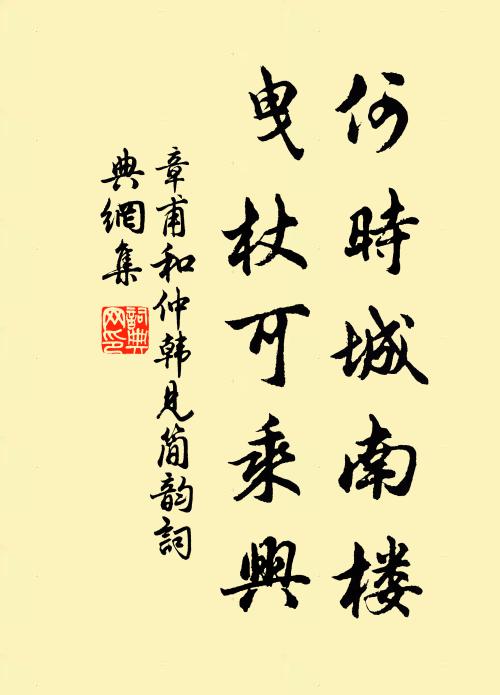 何時城南楼
曳杖可乘興
章甫和仲韩见简韵詞
典網集
詞典
网印